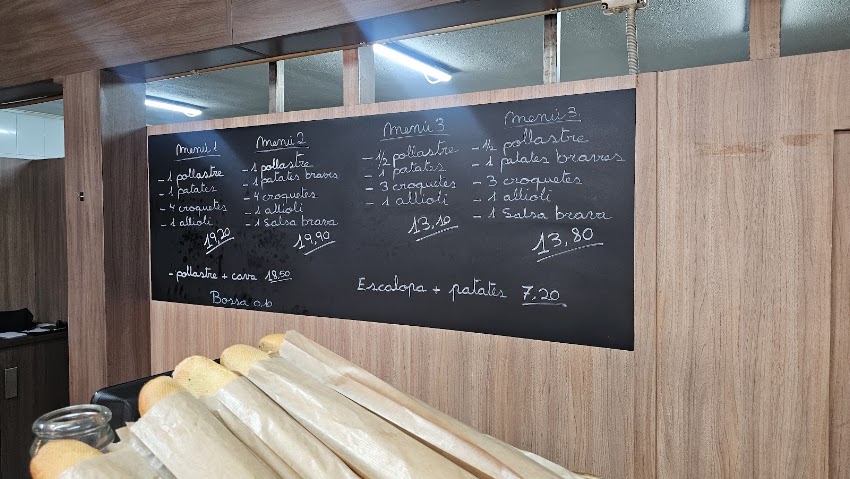 Menú 1
- 1 pollastre
- 1 patates
- 4 croquetes
- 1 allioli
19,20
Menú 2
- 1 pollastre
- 1 patates braves
- 4 croquetes
- 1 allioli
- 1 Salsa brava
19,90
Menú 3
- 1/2 pollastre
- 1 patates
- 3 croquetes
- 1 allioli
13,10
Menú 3
- 1/2 pollastre
- 1 patates braves
- 3 croquetes
- 1 allioli
- 1 Salsa brava
13,80
- pollastre + cava 18,50
Bossa 0,10
Escalopa + patates 7,20